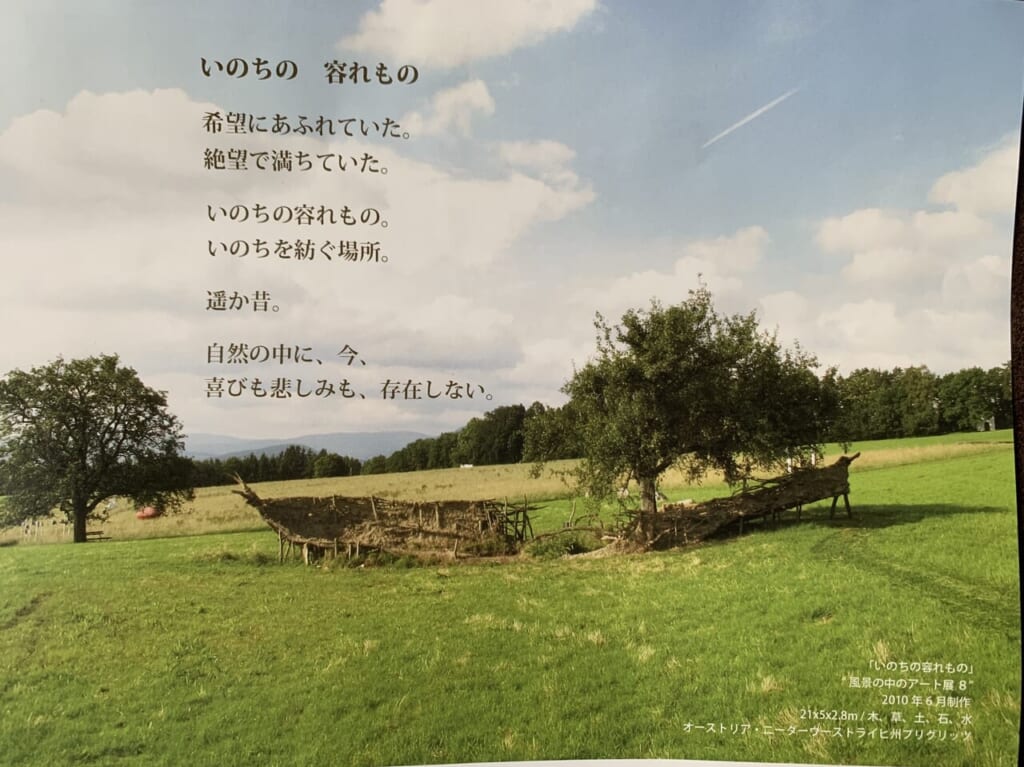 いのちの　容れもの
希望にあふれていた。
絶望で満ちていた。
いのちの容れもの。
いのちを紡ぐ場所。
遥か昔。
自然の中に、今、
喜びも悲しみも、存在しない。
「いのちの容れもの」
"風景の中のアート展 8"
2010 年 6 月制作
21x5x2.8m / 木、草、土、石、水
オーストリア・ニーダーヴーストライヒ州プリグリッツ